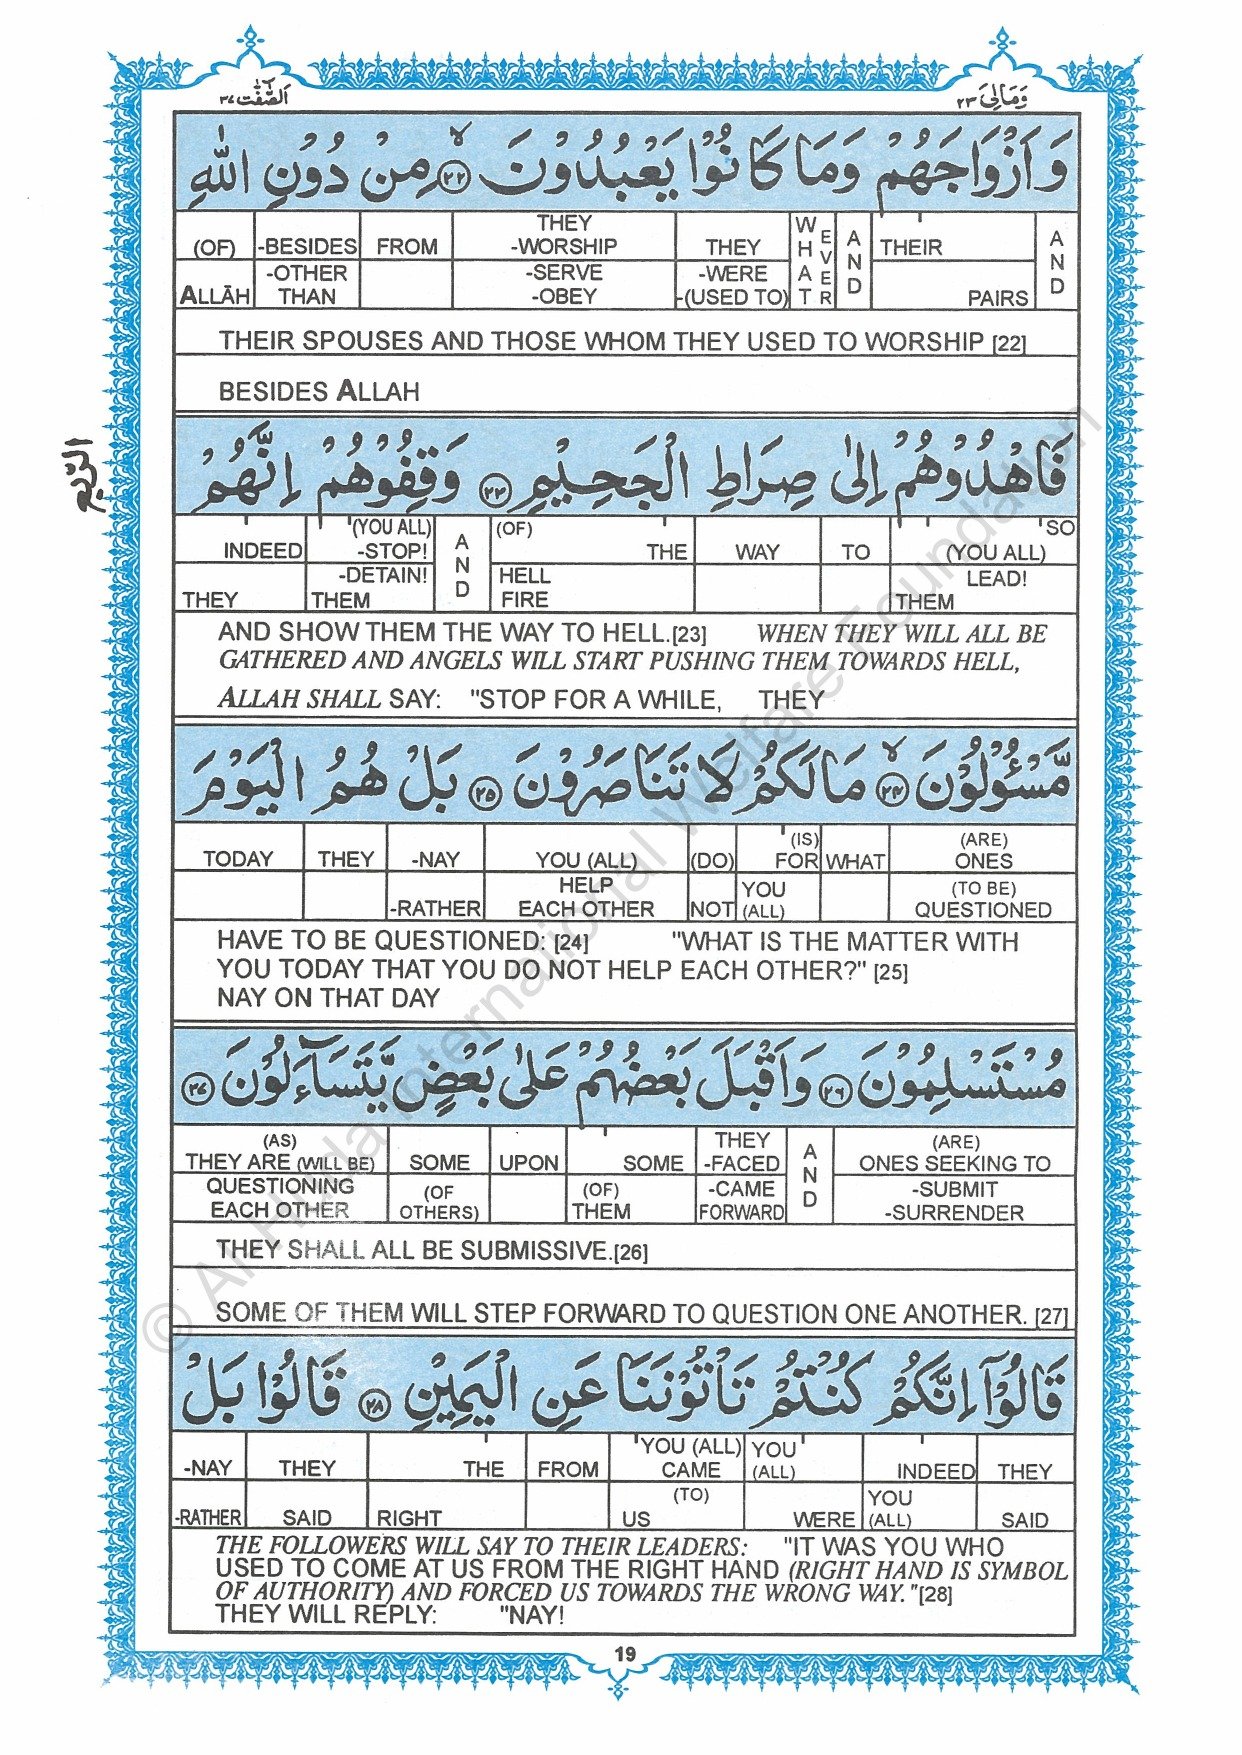 وَمَالِیَ ٢٣
اَلصّٰٓفّٰت ٣٧
وَاَزْوَاجَهُمْ وَمَا كَانُوْا يَعْبُدُوْنَ ﴿٢٢﴾ مِنْ دُوْنِ اللّٰهِ
(OF) -BESIDES FROM THEY -WORSHIP THEY WHAT EVER AND THEIR AND
ALLĀH -OTHER THAN -SERVE -OBEY -WERE -(USED TO) PAIRS
THEIR SPOUSES AND THOSE WHOM THEY USED TO WORSHIP [22]
BESIDES ALLAH
الربع
فَاهْدُوْهُمْ اِلٰى صِرَاطِ الْجَحِيْمِ ﴿٢٣﴾ وَقِفُوْهُمْ اِنَّهُمْ
INDEED (YOU ALL) -STOP! AND (OF) THE WAY TO SO (YOU ALL)
THEY -DETAIN! THEM HELL FIRE LEAD! THEM
AND SHOW THEM THE WAY TO HELL.[23] WHEN THEY WILL ALL BE
GATHERED AND ANGELS WILL START PUSHING THEM TOWARDS HELL,
ALLAH SHALL SAY: "STOP FOR A WHILE, THEY
مَّسْـُٔوْلُوْنَ ﴿٢٤﴾ مَا لَكُمْ لَا تَنَاصَرُوْنَ ﴿٢٥﴾ بَلْ هُمُ الْيَوْمَ
TODAY THEY -NAY YOU (ALL) (DO) (IS) FOR WHAT (ARE) ONES
-RATHER HELP EACH OTHER NOT YOU (ALL) (TO BE) QUESTIONED
HAVE TO BE QUESTIONED: [24] "WHAT IS THE MATTER WITH
YOU TODAY THAT YOU DO NOT HELP EACH OTHER?" [25]
NAY ON THAT DAY
مُسْتَسْلِمُوْنَ ﴿٢٦﴾ وَاَقْبَلَ بَعْضُهُمْ عَلٰى بَعْضٍ يَّتَسَآءَلُوْنَ ﴿٢٧﴾
(AS) THEY ARE (WILL BE) SOME UPON SOME THEY -FACED AND (ARE) ONES SEEKING TO
QUESTIONING EACH OTHER (OF OTHERS) (OF) THEM -CAME FORWARD -SUBMIT -SURRENDER
THEY SHALL ALL BE SUBMISSIVE.[26]
SOME OF THEM WILL STEP FORWARD TO QUESTION ONE ANOTHER. [27]
قَالُوْٓا اِنَّكُمْ كُنْتُمْ تَاْتُوْنَنَا عَنِ الْيَمِيْنِ ﴿٢٨﴾ قَالُوْا بَلْ
-NAY THEY THE FROM YOU (ALL) CAME YOU (ALL) INDEED THEY
-RATHER SAID RIGHT (TO) US WERE YOU (ALL) SAID
THE FOLLOWERS WILL SAY TO THEIR LEADERS: "IT WAS YOU WHO
USED TO COME AT US FROM THE RIGHT HAND (RIGHT HAND IS SYMBOL
OF AUTHORITY) AND FORCED US TOWARDS THE WRONG WAY."[28]
THEY WILL REPLY: "NAY!
19
© Al Huda International Welfare Foundation